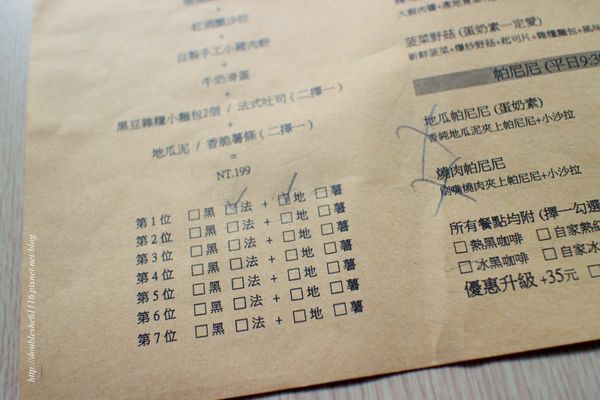 紅酒醋沙拉
+
自製手工小雞肉餅
+
牛奶滑蛋
+
黑豆雜糧小麵包2個 / 法式吐司 (二擇一)
+
地瓜泥 / 香脆薯條 (二擇一)
=
NT.199
第1位 □黑 □法 + □地 □薯
第2位 □黑 □法 + □地 □薯
第3位 □黑 □法 + □地 □薯
第4位 □黑 □法 + □地 □薯
第5位 □黑 □法 + □地 □薯
第6位 □黑 □法 + □地 □薯
第7位 □黑 □法 + □地 □薯
菠菜野菇 (蛋奶素一定愛)
新鮮菠菜+爆炒野菇+起司片+雜糧麵包+風味
帕尼尼 (平日9:30
地瓜帕尼尼 (蛋奶素)
香純地瓜泥夾上帕尼尼+小沙拉
燒肉帕尼尼
燒肉夾上帕尼尼+小沙拉
所有餐點均附 (擇一勾選
□熱黑咖啡 □自家熱
□冰黑咖啡 □自家冰
優惠升級 +35元
http://doubleshe61116.pixnet.net/blog